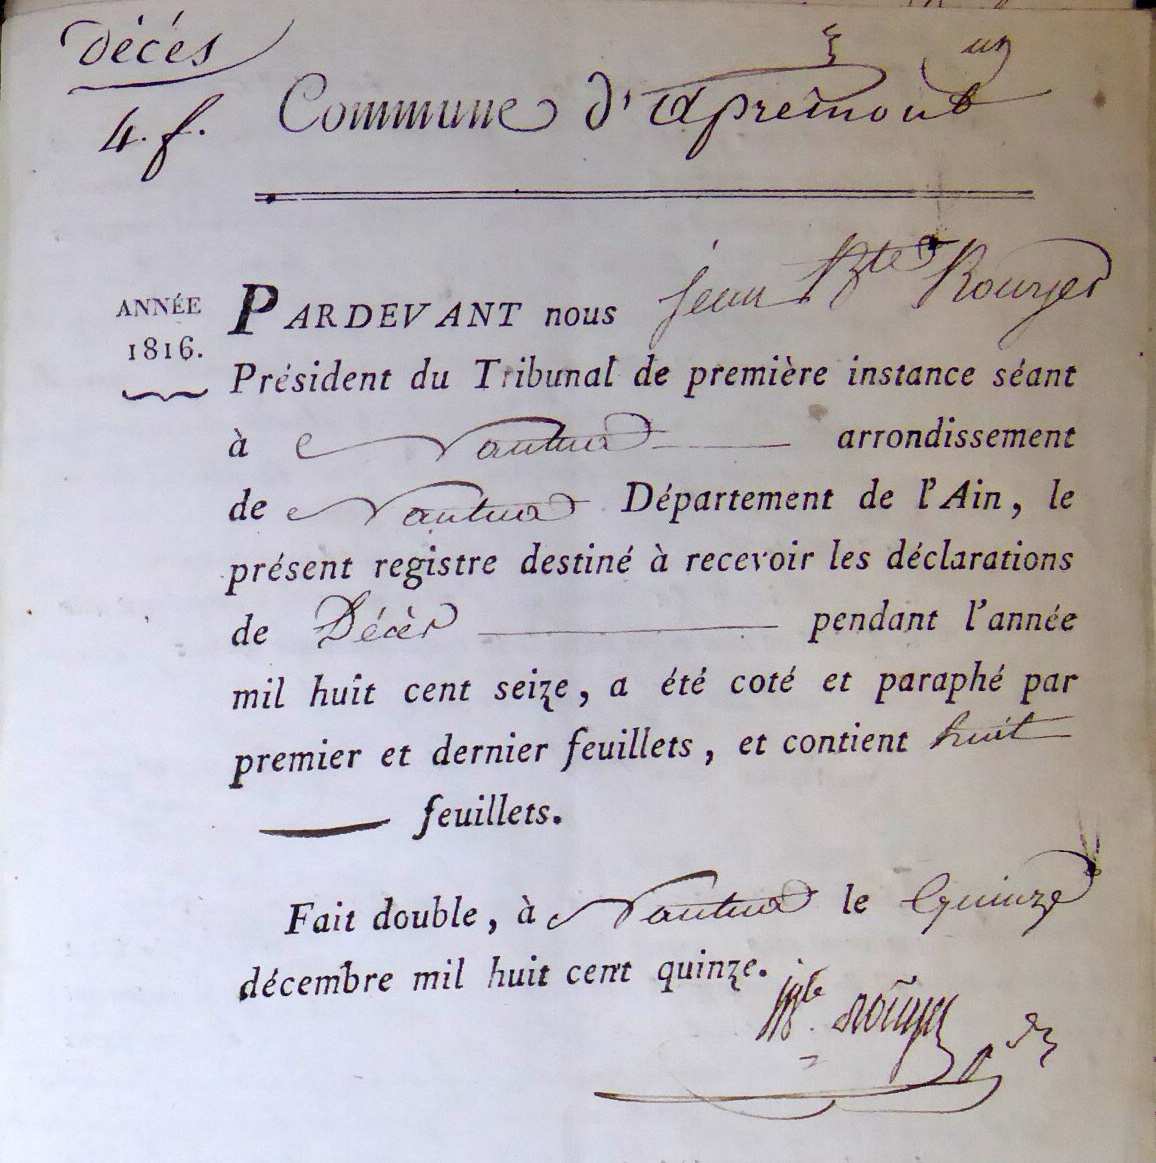 décés
4. f.
un
Commune d'apremont
ANNÉE
1816.
PARDEVANT nous jean Bte Rouyer
Président du Tribunal de première instance séant
à Nantua arrondissement
de Nantua Département de l'Ain, le
présent registre destiné à recevoir les déclarations
de Décès pendant l'année
mil huit cent seize, a été coté et paraphé par
premier et dernier feuillets, et contient huit
feuillets.
Fait double, à Nantua le Quinze
décembre mil huit cent quinze.